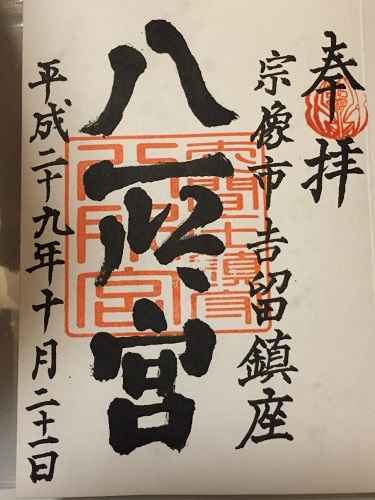 奉拝
宗像市吉留鎮座
八所宮
平成二十九年十月二十一日